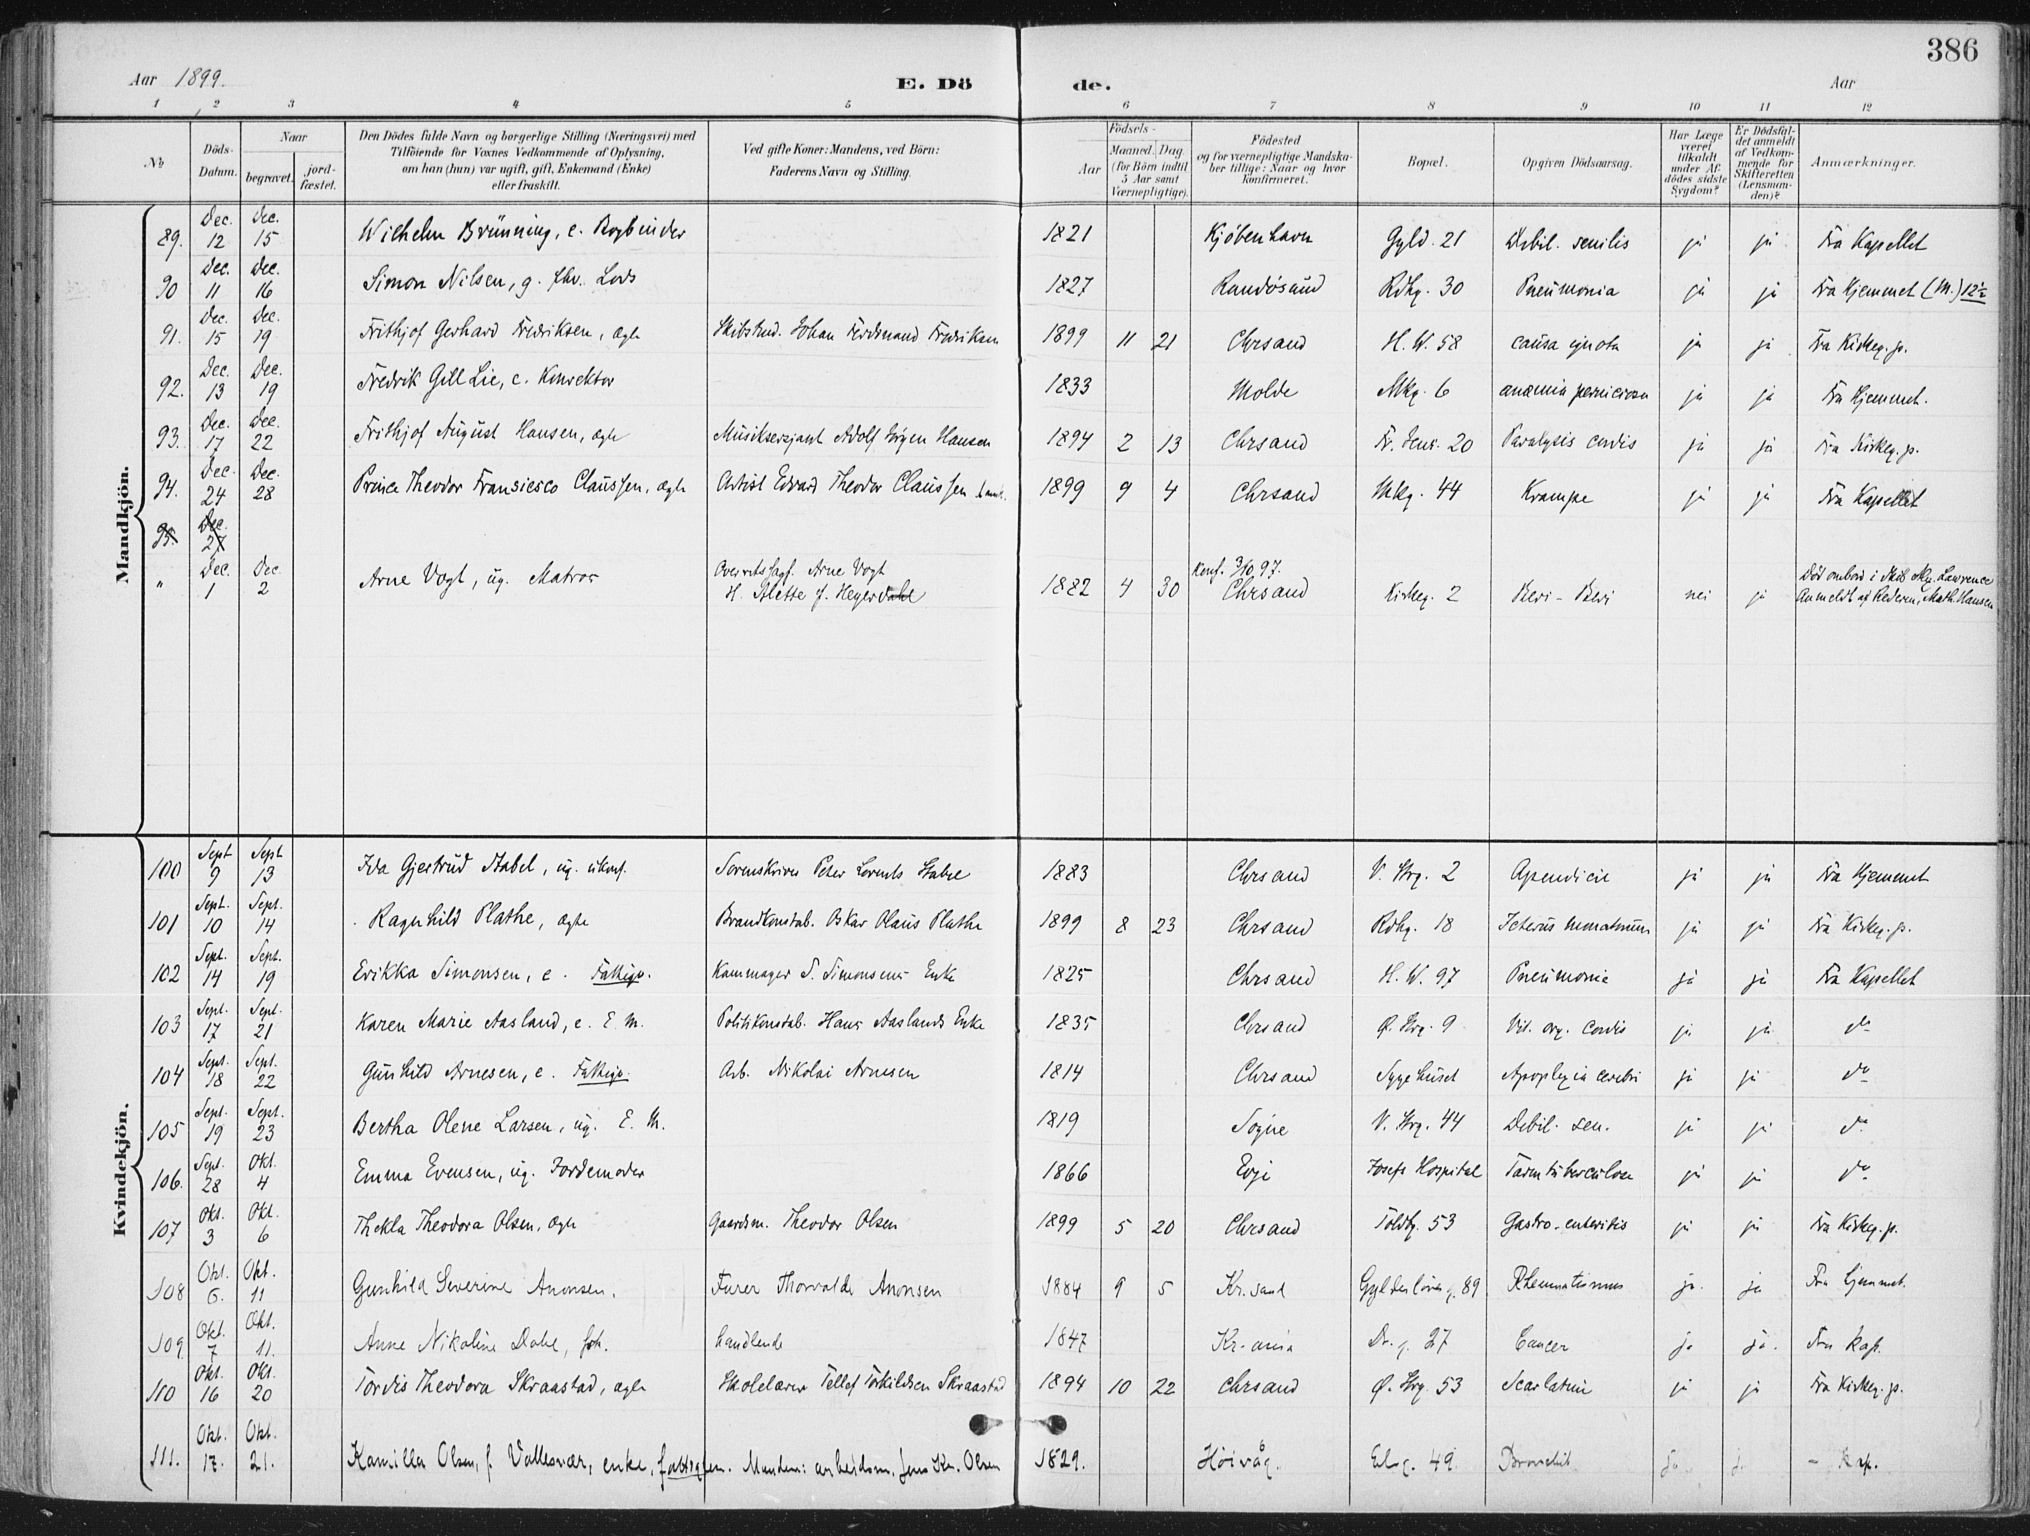 386
Aar 1899.
E. Dö de.
Aar
1 2 3 4 5 6 7 8 9 10 11 12
No
Döds-Datum.
Naar
begravet.
jord-fæstet.
Den Dödes fulde Navn og borgerlige Stilling (Næringsvei) med
Tilföiende for Voxnes Vedkommende af Oplysning,
om han (hun) var ugift, gift, Enkemand (Enke)
eller fraskilt.
Ved gifte Koner: Mandens, ved Börn:
Faderens Navn og Stilling.
Födsels-
Aar
Maaned. Dag.
(for Börn indtil
5 Aar samt
Værnepligtige).
Födested
og for værnepligtige Mandska-
ber tillige: Naar og hvor
konfirmeret.
Bopæl.
Opgiven Dödsaarsag.
Har Læge
været
tilkaldt
under Af-
dödes sidste
Sygdom?
Er Dödsfal-
det anmeldt
af Vedkom-
mende for
Skifteretten
(Lensman-
den)?
Anmærkninger.
Mandkjön.
89. Dec. 12 Dec. 15 Wilhelm Brünning, e. Bogbinder 1821 Kjöbenhavn Gyld. 21 Debil. senilis ja ja Fra Kapellet
90 Dec. 11 Dec. 16 Simon Nilsen, g. fhv. Lods 1827 Randösund Rdhg. 30 Pneumonia ja ja Fra Hjemmet (M.) 12½
91. Dec. 15 Dec. 19 Frithjof Gerhard Fredriksen, ægte Skibstmd. Johan Ferdinand Fredriksen 1899 11 21 Chrsand H. W. 58 causa ignota ja ja Fra Kirkeg. p.
92. Dec. 13 Dec. 19 Fredrik Gill Lie, e. Konrektor 1833 Molde Mkg. 6 anæmia perniciosa ja ja Fra Hjemmet.
93. Dec. 17 Dec. 22 Frithjof August Hansen, ægte Musiksersjant Adolf Jörgen Hansen 1894 2 13 Chrsand Fr. Jens. 20 Paralysis cordis ja ja Fra Kirkeg. p.
94. Dec. 24 Dec. 28 Prince Theodor Fransiesco Claussen, ægte Artist Edvard Theodor Claussen 1899 9 4 Chrsand Mkg. 44 Krampe ja ja Fra Kapellet
95 Dec. 27
" Dec. 1 Dec. 2 Arne Vogt, ug. Matros Overretssagf. Arne Vogt
H. Alette f. Heyerdahl 1882 4 30 Konf. 3/10 97.
Chrsand Kirkeg. 2 Beri-Beri nei ja Död ombord i Skib Lawrence
Anmeldt af Rederen, Math. Hansen
Kvindekjön.
100 Sept 9 Sept 13 Ida Gjertrud Stabel, ug. ukonf. Sorenskriver Peter Lorents Stabel 1883 Chrsand V. Strg. 2 Apendicit ja ja Fra Hjemmet
101 Sept. 10 Sept. 14 Ragnhild Plathe, ægte Brandkonstab. Oskar Olaus Plathe 1899 8 23 Chrsand Rdhg. 18 Icterus neonatorum ja ja Fra Kirkeg. p.
102 Sept. 14 Sept. 19 Erikka Simonsen, e. Fattigv. Kammager S. Simonsens Enke 1825 Chrsand H. W. 97 Pneumonie ja ja Fra Kapellet
103 Sept. 17 Sept. 21 Karen Marie Aasland, e. E. M. Politikonstab. Hans Aaslands Enke 1835 Chrsand Ø. Strg. 9 Vit. org. cordis ja ja do
104 Sept. 18 Sept. 22 Gunhild Arnesen, e. Fattigv. Arb. Nikolai Arnesen 1814 Chrsand Sygehuset Apoplexia cerebri ja ja do
105 Sept. 19 Sept. 23 Bertha Olene Larsen, ug. E. M. 1819 Sogne V. Strg. 44 Debil. sen. ja ja do
106. Sept. 28 Okt. 4 Emma Evensen, ug. Jordemoder 1866 Evje Josefs Hospital Tarmtuberculose ja ja do
107 Okt. 3 Okt. 6 Thekla Theodora Olsen, ægte Gaardsm. Theodor Olsen 1899 5 20 Chrsand Toldbg. 53 Gastro-enteritis ja ja Fra Kirkeg. p.
108 Okt. 6. Okt. 11 Gunhild Severine Anonsen. Furer Thorvald Anonsen 1884 9 5 Kr.sand Gyldenlöves g. 89 Rheumatismus ja. ja Fra hjemmet.
109. Okt. 7 Okt. 11. Anne Nikoline Dahl, handlende 1847 Kr-ania Dr. g. 27 Cancer ja ja. Fra kap.
110 Okt. 16 Okt. 20 Tordis Theodora Skraastad, ægte Skolelærer Tellef Torkildsen Skraastad 1894 10 22 Chrsand Ø. Strg. 53 Scarlatina ja ja Fra Kirkeg. p.
111. Okt. 17. Okt. 21. Kamilla Olsen, f. Vallesvær, enke, fattigven. Manden: arbeidsm. Jens Kr. Olsen 1829. Höivåg. Elvg. 49. Bronchit ja j. – Kap.